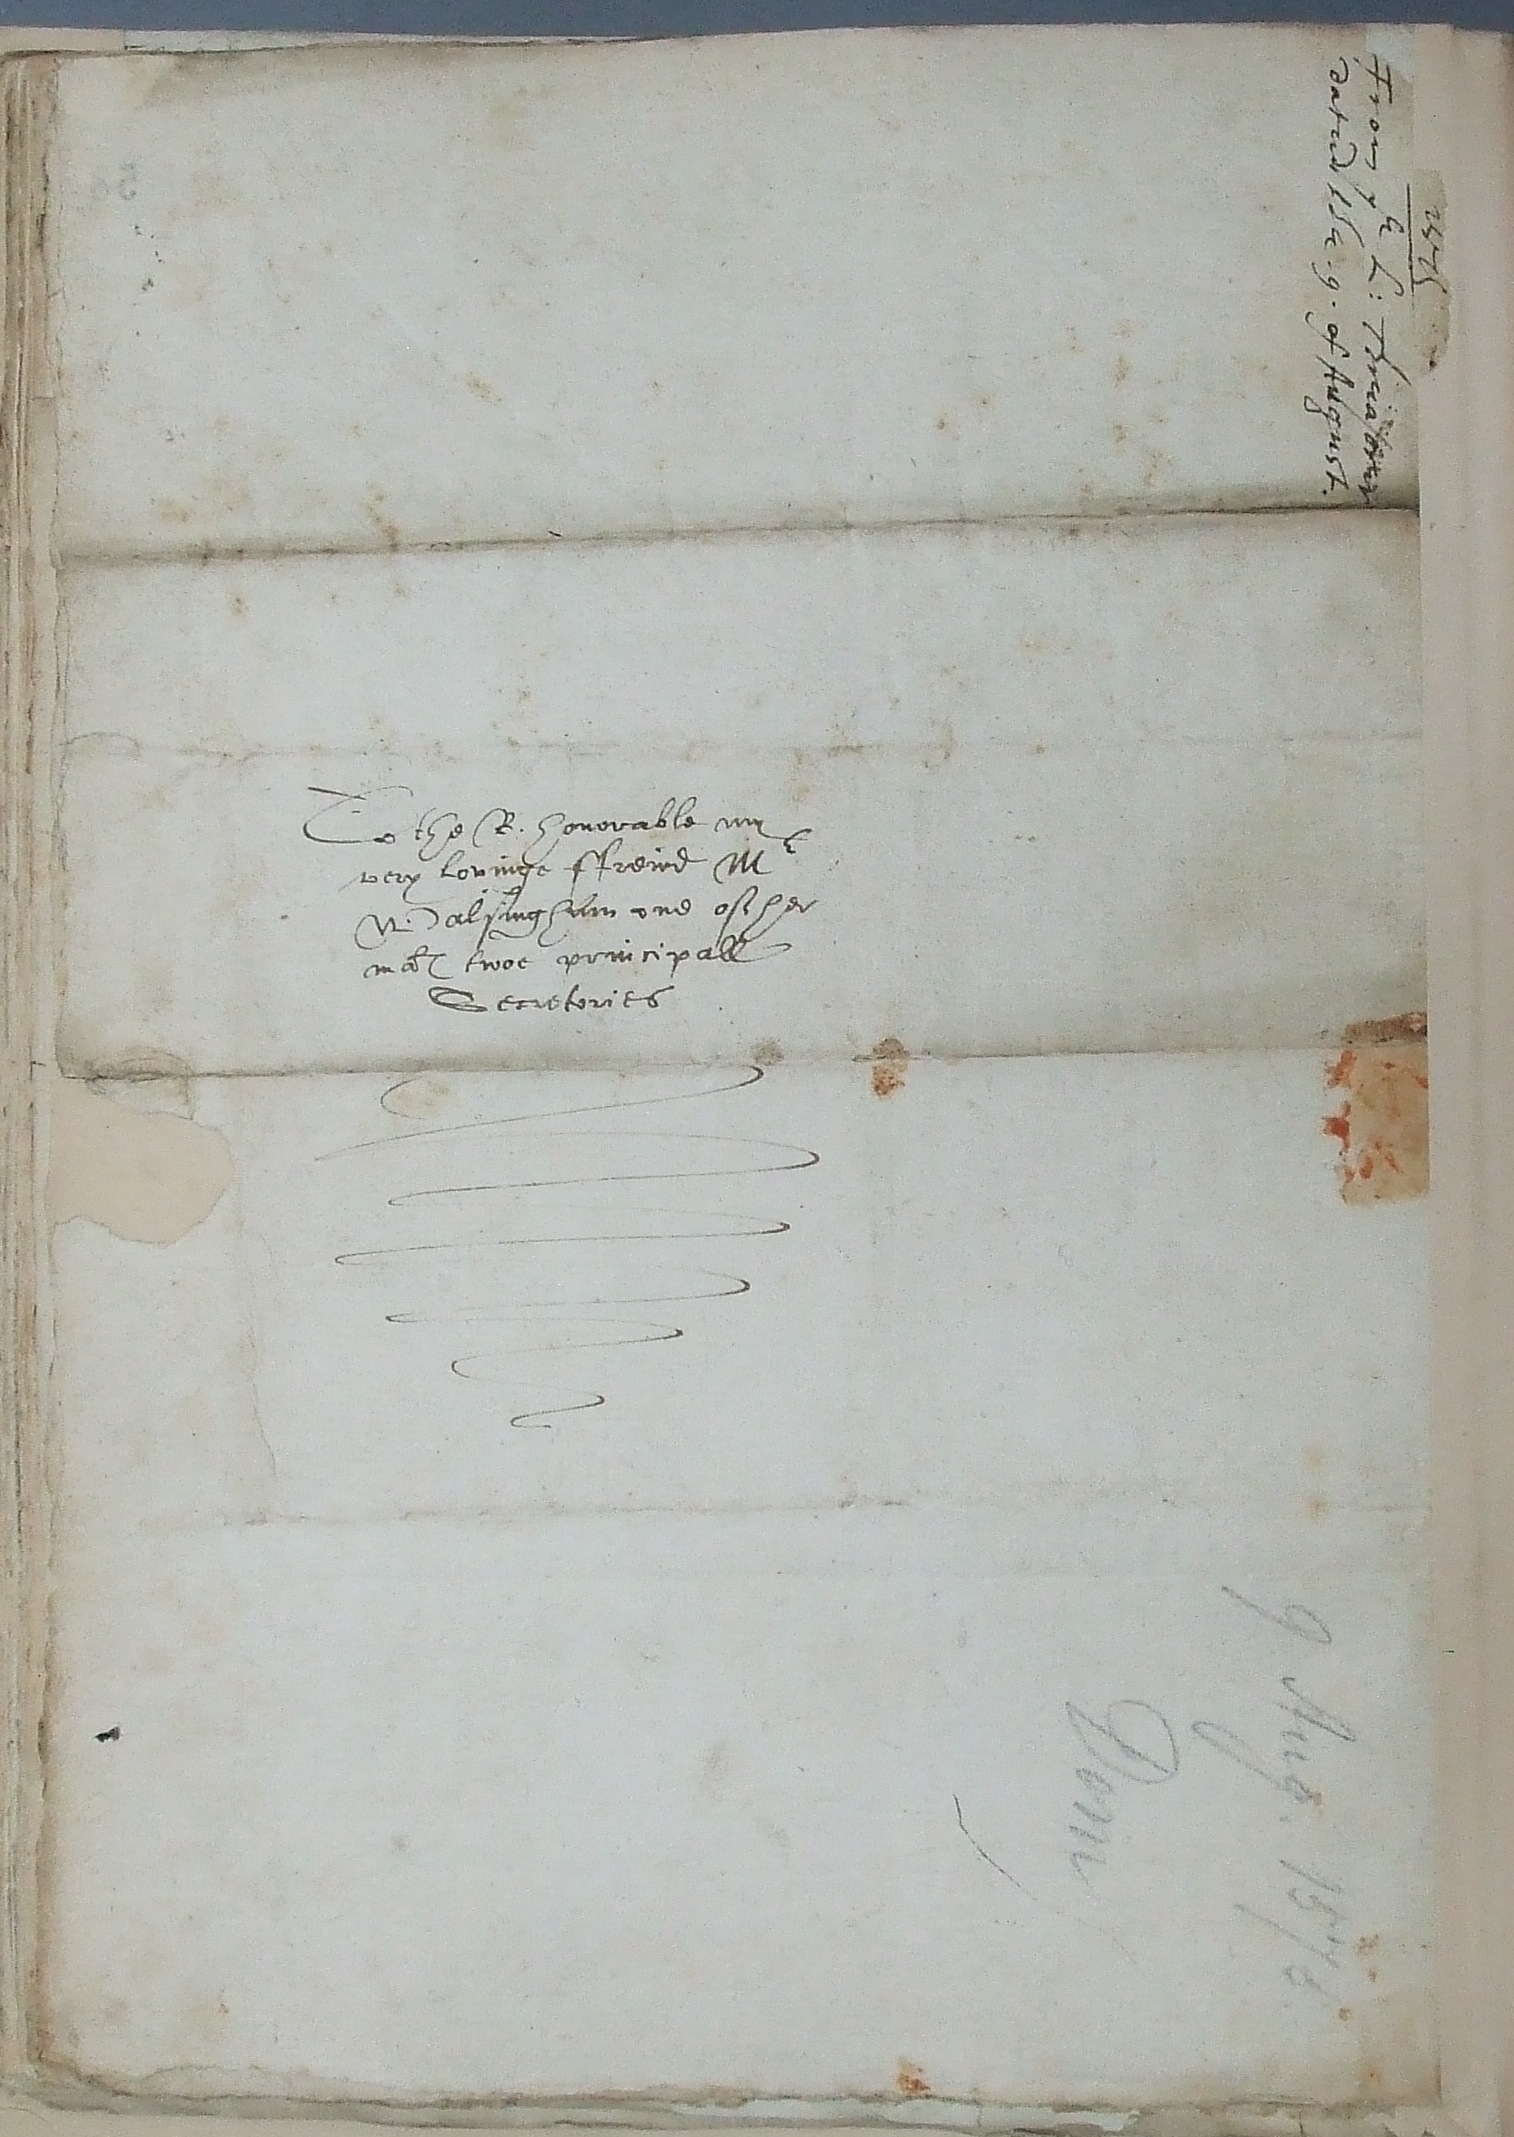 1575
From ye L: Threasorer
dated the .9. of August.
To the R. honorable my
very lovinge ffreind Mr
Walsingham one of her
mats twoe principall
Secretories
9 Aug. 157
Dom